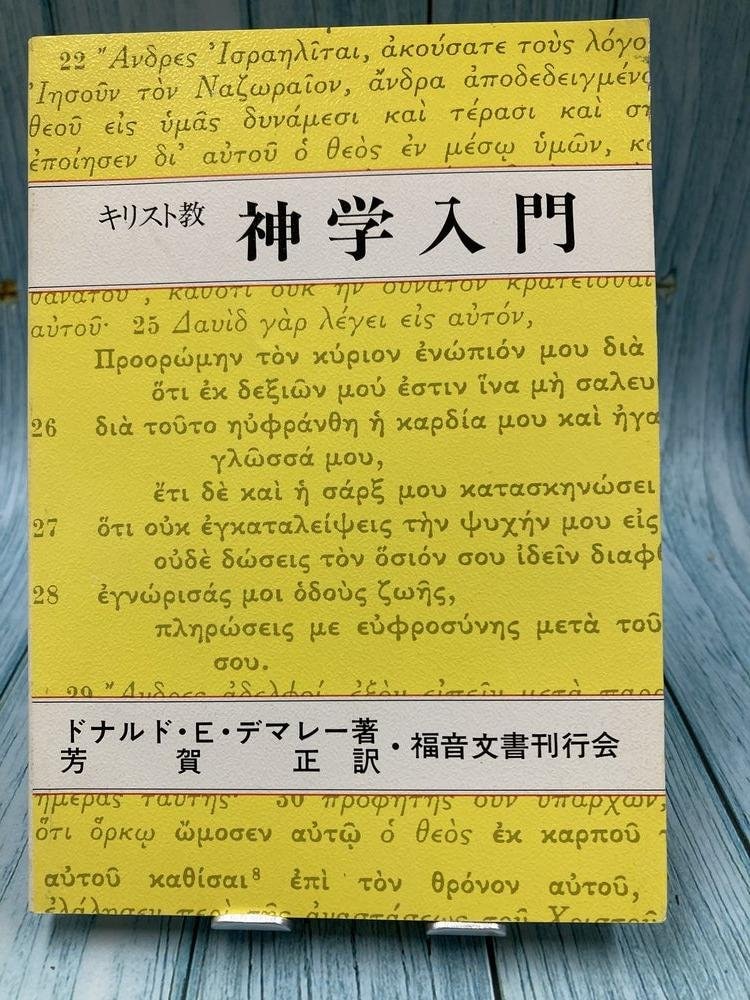 22 "Ανδρες 'Ισραηλῖται, ἀκούσατε τοὺς λόγο
'Ιησοῦν τὸν Ναζωραῖον, ἄνδρα ἀποδεδειγμένο
θεοῦ εἰς ὑμᾶς δυνάμεσι καὶ τέρασι καὶ ση
ἐποίησεν δι' αὐτοῦ ὁ θεὸς ἐν μέσῳ ὑμῶν, κα
キリスト教 神学入門
θανάτου, καθότι οὐκ ἦν δυνατὸν κρατεῖσθαι
αὐτοῦ· 25 Δαυὶδ γὰρ λέγει εἰς αὐτόν,
Προορώμην τὸν κύριον ἐνώπιόν μου διὰ
ὅτι ἐκ δεξιῶν μού ἐστιν ἵνα μὴ σαλευ
26 διὰ τοῦτο ηὐφράνθη ἡ καρδία μου καὶ ἠγα
γλῶσσά μου,
ἔτι δὲ καὶ ἡ σάρξ μου κατασκηνώσει
27 ὅτι οὐκ ἐγκαταλείψεις τὴν ψυχήν μου εἰς
οὐδὲ δώσεις τὸν ὅσιόν σου ἰδεῖν διαφθ
28 ἐγνώρισάς μοι ὁδοὺς ζωῆς,
πληρώσεις με εὐφροσύνης μετὰ τοῦ
σου.
29 "Ανδρες ἀδελφοί, ἐξὸν εἰπεῖν μετὰ παρρ
ドナルド・E・デマレー著
芳賀正訳・福音文書刊行会
ἡμέρας ταύτης· 30 προφήτης οὖν ὑπάρχων,
ὅτι ὅρκῳ ὤμοσεν αὐτῷ ὁ θεὸς ἐκ καρποῦ τ
αὐτοῦ καθίσαι⁸ ἐπὶ τὸν θρόνον αὐτοῦ,
ἐλάλησεν περὶ τῆς ἀναστάσεως τοῦ Χριστοῦ